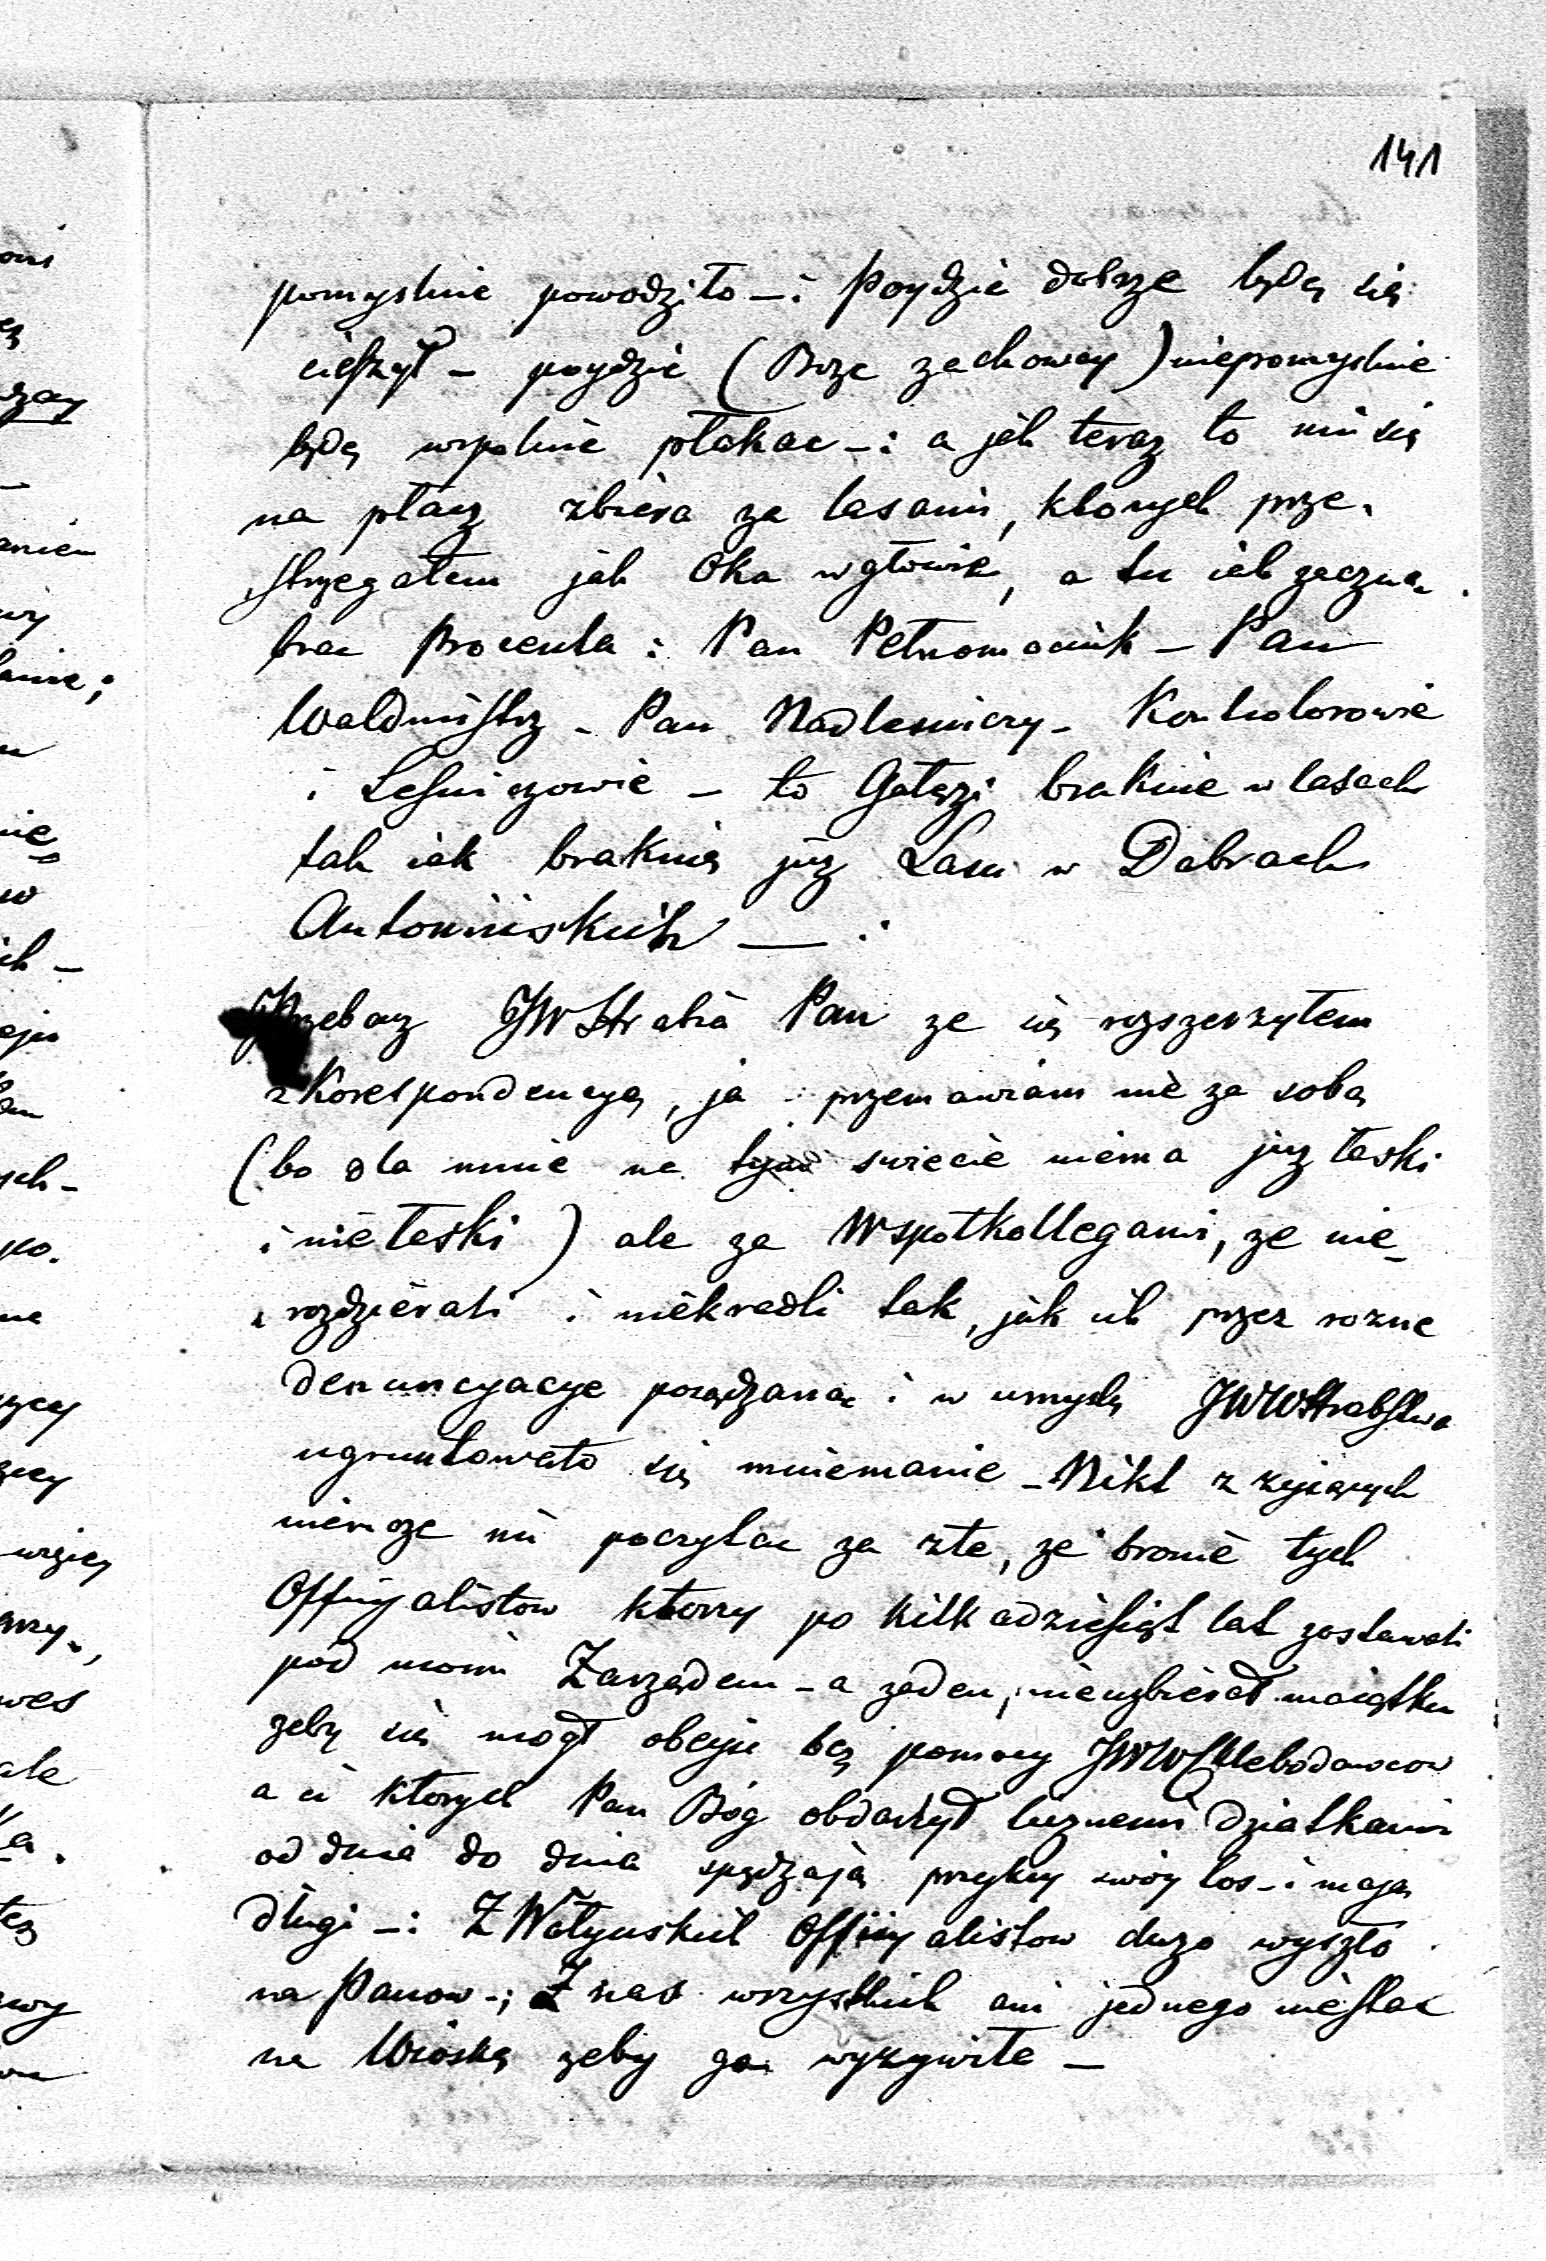 141
pomyslnie powodziło -: Poydzie dobrze będę się
cieszył - poydzie (Boze zachoway) niepomyslnie
będę wspolnie płakac -: a jak teraz to mi się
na płacz zbiera za lasami, ktorych prze-
strzegałem jak Oka w głowie, a tu iak zaczną
brac Procenta : Pan Pełnomocnik - Pan
Waldmistrz - Pan Nadlesniczy - Kontrolorowie
i Lesniczowie - to Gałęzi braknie w lasach
tak iak braknie juz Lasu w Dobrach
Antonińskich — .
Przebacz JW Hrabia Pan ze się rozszerzyłem
z Korespondencyą, ja przemawiam nie za sobą
(bo dla mnie na tym swiecie niema juz łaski
i nie łaski) ale za Wspołkollegami, ze nie-
rozdzierali i niekradli tak, jak ich przez rozne
denuncyacye posądzano i w umysle JWW Hrabstwa
ugruntowało się mniemanie - Nikt z zyiących
niemoze mi poczytac za złe, ze bronie tych
Officyalistow ktorzy po kilkadziesiąt lat zostawali
pod moim Zarządem - a zaden nieuzbierał maiątku
zeby się mogł obeyśc bez pomocy JWW Chlebodawcow
a ci ktorych Pan Bóg obdarzył licznemi Dziatkami
od dnia do dnia spędzają przykry swóy los - i mają
długi -: Z Wołynskich Officyalistow duzo wyszło
na Panow -; Z nas wszystkich ani jednego niestac
na Wioskę zeby go wyzywiła -
ani
ę
ich -
ych -
po.
wzięy
wes
ale